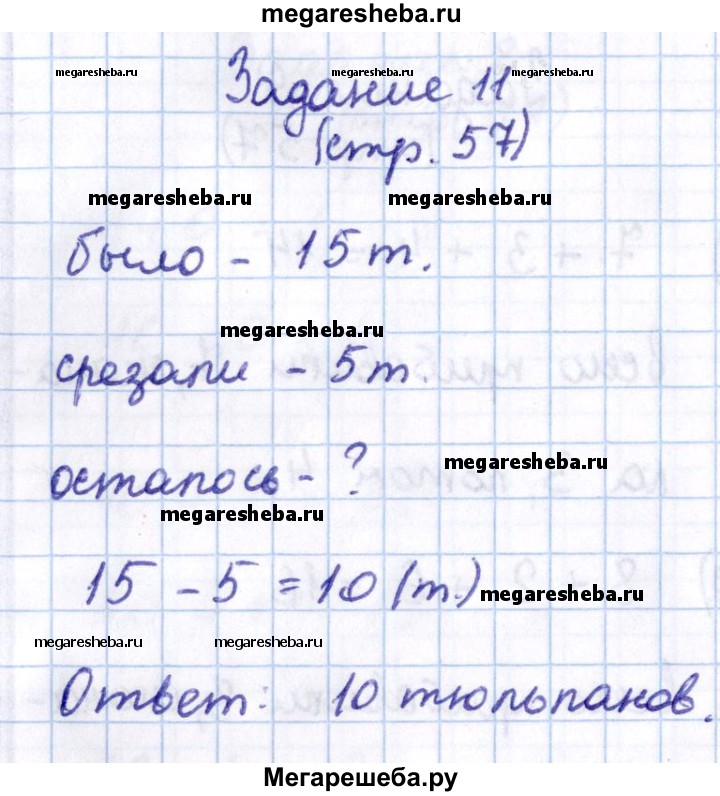 megaresheba.ru
megaresheba.ru megaresheba.ru megaresheba.ru
Задание 11
(стр. 57)
megaresheba.ru megaresheba.ru
было - 15 т.
megaresheba.ru
срезали - 5 т
осталось - ?
megaresheba.ru
megaresheba.ru
15 - 5 = 10 (т.)
megaresheba.ru
megaresheba.ru megaresheba.ru
Ответ: 10 тюльпанов.
Мегарешеба.ру